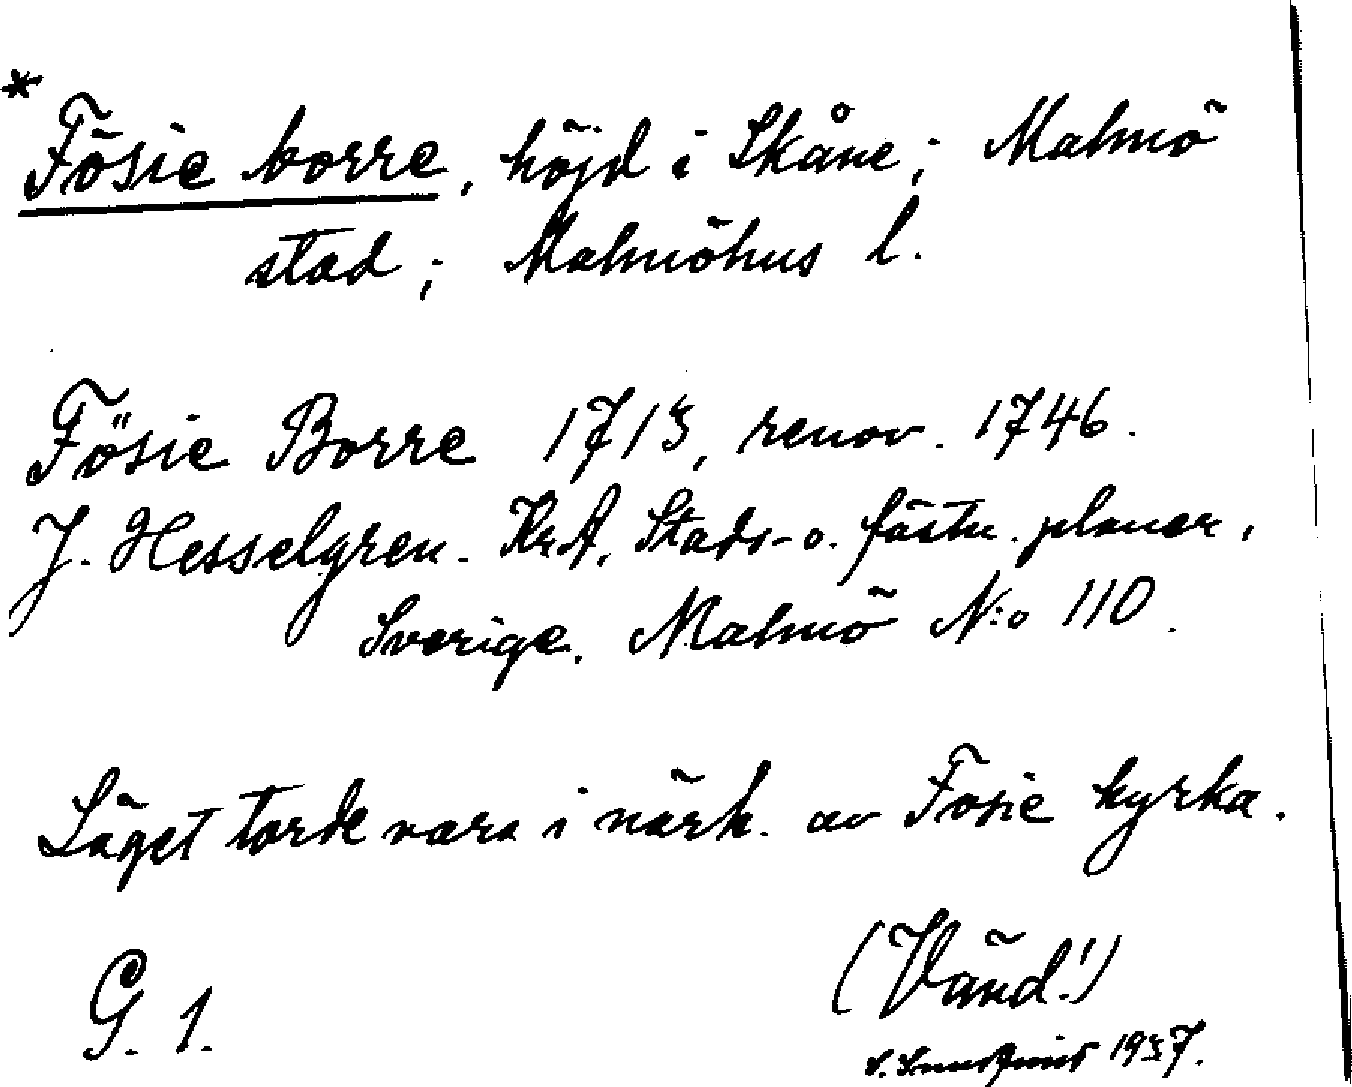 *
Fösie borre, höjd i Skåne; Malmö
stad; Malmöhus l.
Fösie Borre 1715, renov. 1746.
J. Hesselgren. Kr.A. Stads- o. fästn. planer,
Sverige. Malmö N:o 110.
Läget torde vara i närh. av Fosie kyrka.
(Vänd!)
G. 1.
1957.